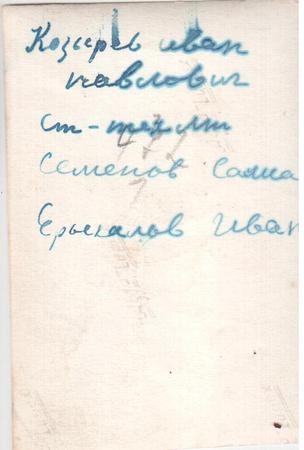 Козырев иван
павлович
ст-тех лт
Семенов Саша
Ерыкалов Иван